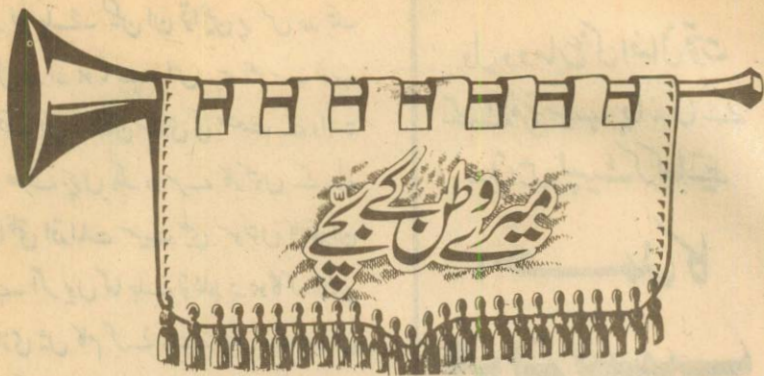 میرے وطن کے بچے